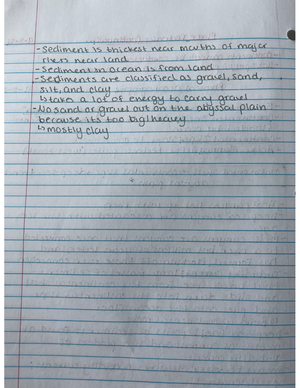 -Sediment is thickest near mouths of major
rivers near land
-Sediment in ocean is from land
-Sediments are classified as gravel, sand,
silt, and clay
↳take a lot of energy to carry gravel
-No sand or gravel out on the abyssal plain
because its too big/heavy
↳mostly clay